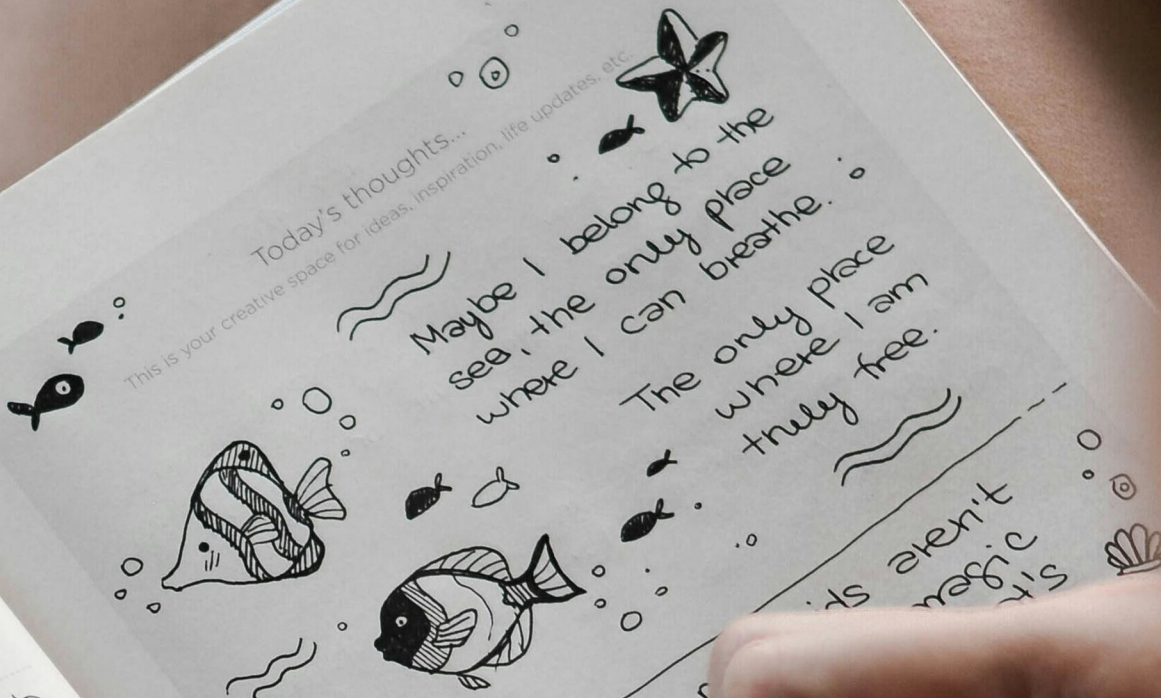 Today's thoughts...
This is your creative space for ideas, inspiration, life updates, etc.
Maybe I belong to the
sea, the only place
where I can breathe.
The only place
where I am
truly free.
aren't
magic